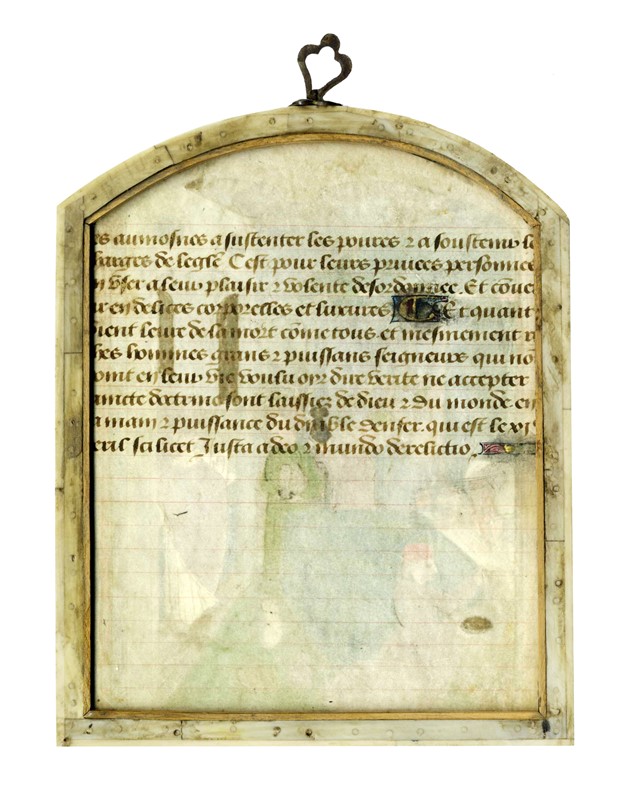 es aumosnes a sustenter les poures ⁊ a soustenir le
barges de leglẽ C est pour leurs priuees personnes
n vser a leur plaisir ⁊ volente desordonnee. Et
ur en delices corporelles et luxures Et quant
uient leure de la mort cõme tous et mesmement
hes hommes grans ⁊ puissans seigneurs qui no
ont en leur vie voulu oyr dire verite ne accepter
aincte doctrine sont laissiez de dieu ⁊ du monde en
a main ⁊ puissance du dyable denfer. qui est le
eril scilicet Justa a deo ⁊ mundo derelictio.